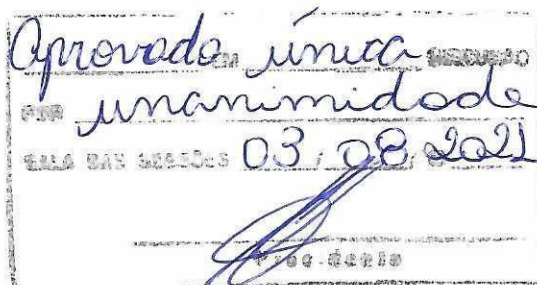 Aprovado EM única DISCUSSÃO
POR unanimidade
SALA DAS SESSÕES 03, 08 2021
Presidente